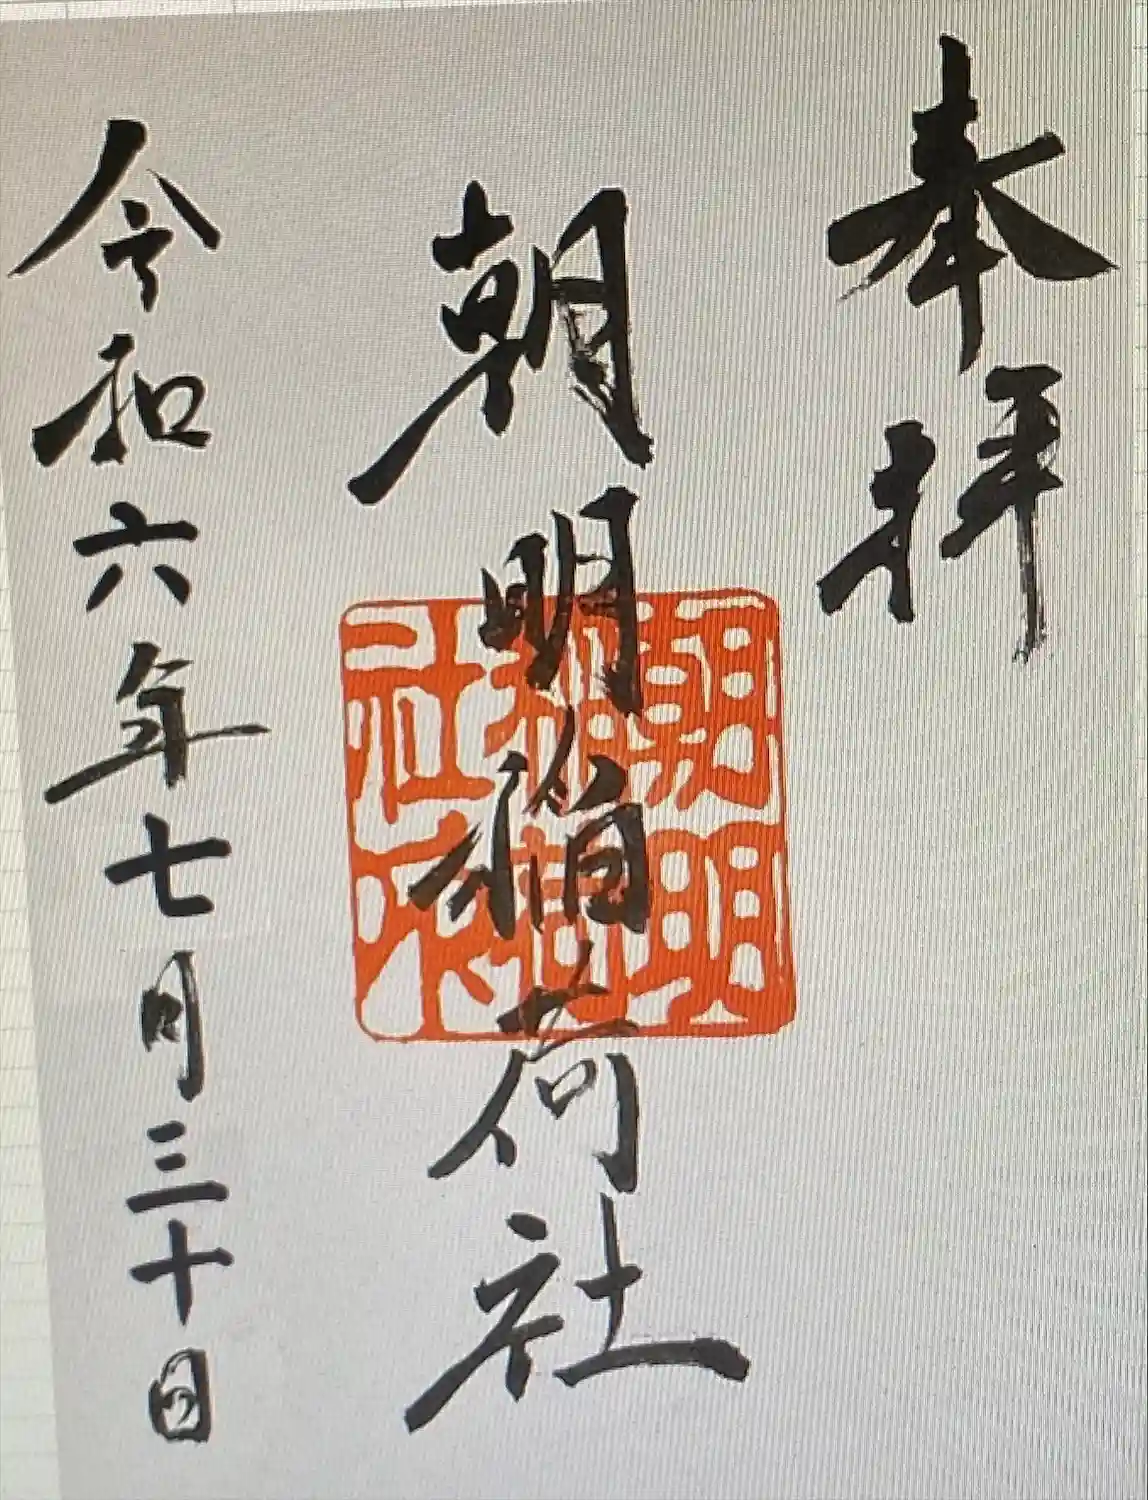 奉拝
朝明稲荷社
令和六年七月三十日
朝明
稲荷
社